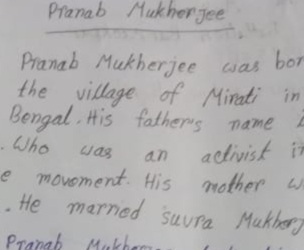 Pranab Mukherjee
Pranab Mukherjee was bor
the village of Mirati in
Bengal. His father's name
. Who was an activist i
e movement. His mother w
. He married Suvra Mukherj
Pranab Mukher